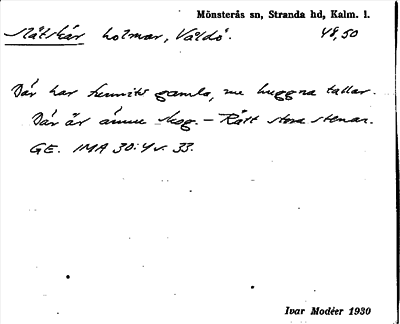 Mönsterås sn, Stranda hd, Kalm. l.
Slätskär holmar, Vållö. 48,50
Där har funnits gamla, nu huggna tallar.
Där är ännu skog. – Rätt stora stenar.
GE. IMA 30:4 s. 33.
Ivar Modéer 1930